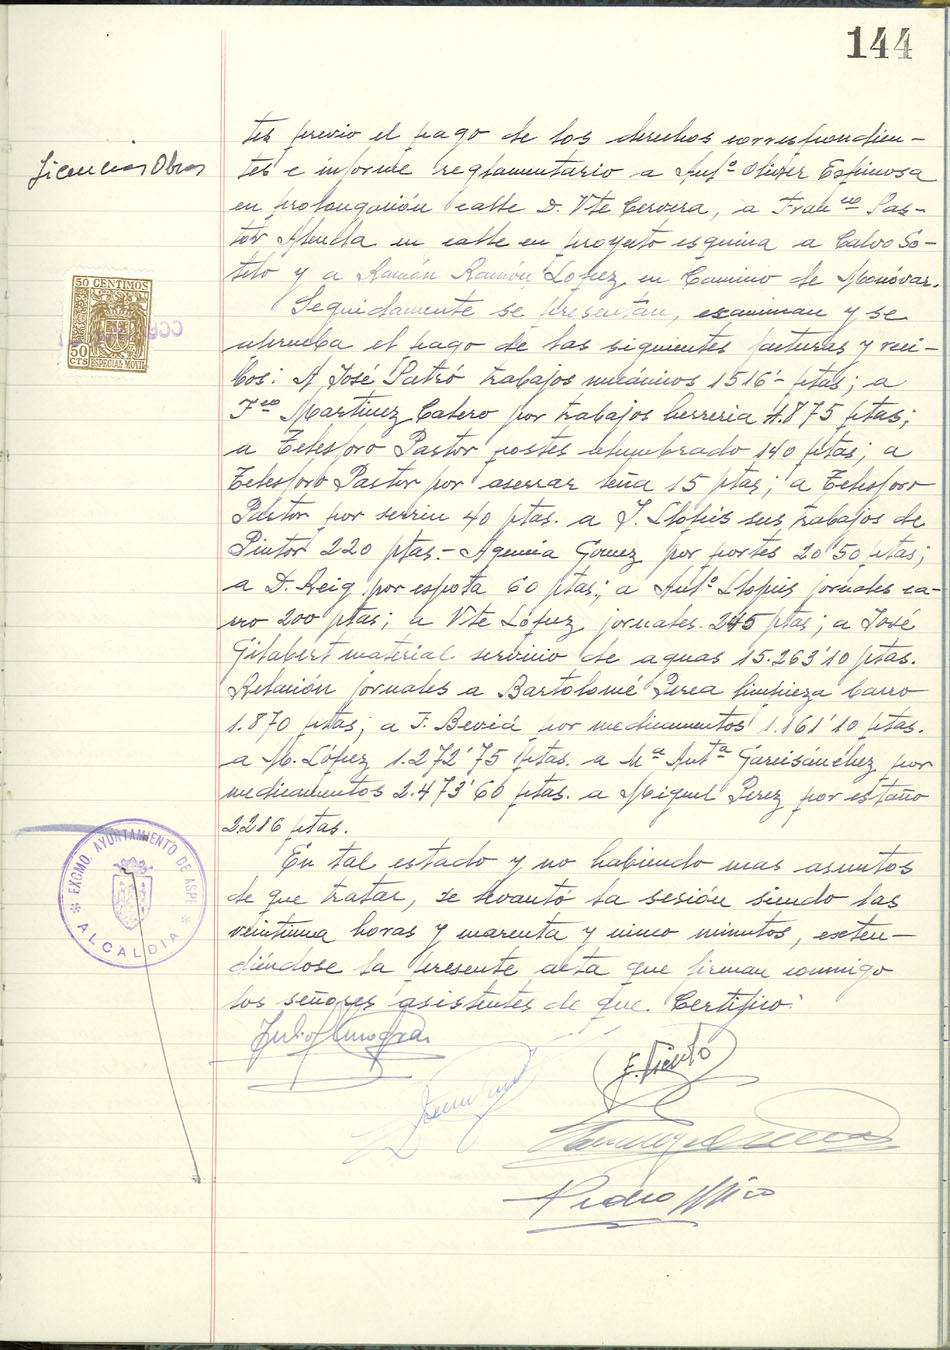 144
Licencias Obras
tes previo el pago de los derechos correspondien-
tes e informe reglamentario a Antº Olivér Espinosa
en prolongación calle D. Vte Cervera, a Franco Pas-
tor Alenda en calle en proyecto esquina a Calvo So-
telo y a Ramón Ramón López en Camino de Monóvar.
Seguidamente se presentan, examinan y se
aprueba el pago de las siguientes facturas y reci-
bos: A José Patró trabajos mecánicos 1516'- ptas; a
Fco Martínez Calero por trabajos herreria 4.875 ptas;
a Telesforo Pastor postes alumbrado 140 ptas; a
Telesforo Pastor por aserrar leña 15 ptas; a Telesforo
Pastor por serrin 40 ptas. a J. Llopis sus trabajos de
Pintor 220 ptas.- Agencia Gomez por portes 20'50 ptas;
a D. Reig por espota 60 ptas; a Antº Llopis jornales ca-
rro 200 ptas; a Vte López jornales 245 ptas; a José
Gilabert material servicio de aguas 15.263'10 ptas.
Relación jornales a Bartolomé Perea limpieza barro
1.870 ptas; a F. Beviá por medicamentos 1.161'10 ptas.
a M. López 1.272'75 ptas. a Mª Antª Garcisánchez por
medicamentos 2.473'60 ptas. a Miguel Perez por estaño
2.216 ptas.
En tal estado y no habiendo mas asuntos
de que tratar, se levantó la sesión siendo las
veintiuna horas y cuarenta y cinco minutos, exten-
diéndose la presente acta que firman conmigo
los señores asistentes de que. Certifico:
50 CENTIMOS
50
CTS
ESPECIAL MOVIL
EXCMO. AYUNTAMIENTO DE ASPE
ALCALDIA
Pedro